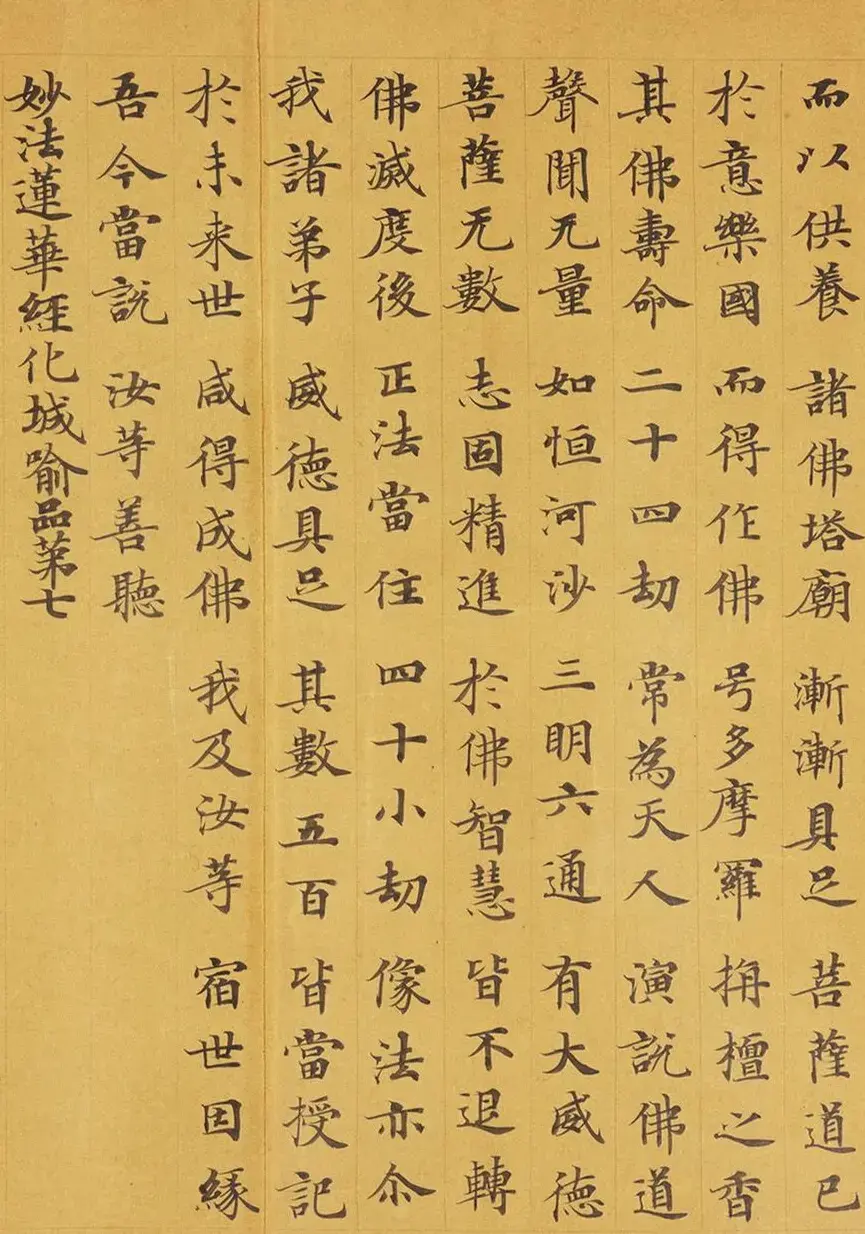 而以供養諸佛塔廟漸漸具足菩薩道已
於意樂國而得作佛号多摩羅栴檀之香
其佛壽命二十四劫常為天人演說佛道
聲聞无量如恒河沙三明六通有大威德
菩薩无數志固精進於佛智慧皆不退轉
佛滅度後正法當住四十小劫像法亦尒
我諸弟子威德具足其數五百皆當授記
於未来世咸得成佛我及汝等宿世因緣
吾今當說汝等善聽
妙法蓮華經化城喻品第七